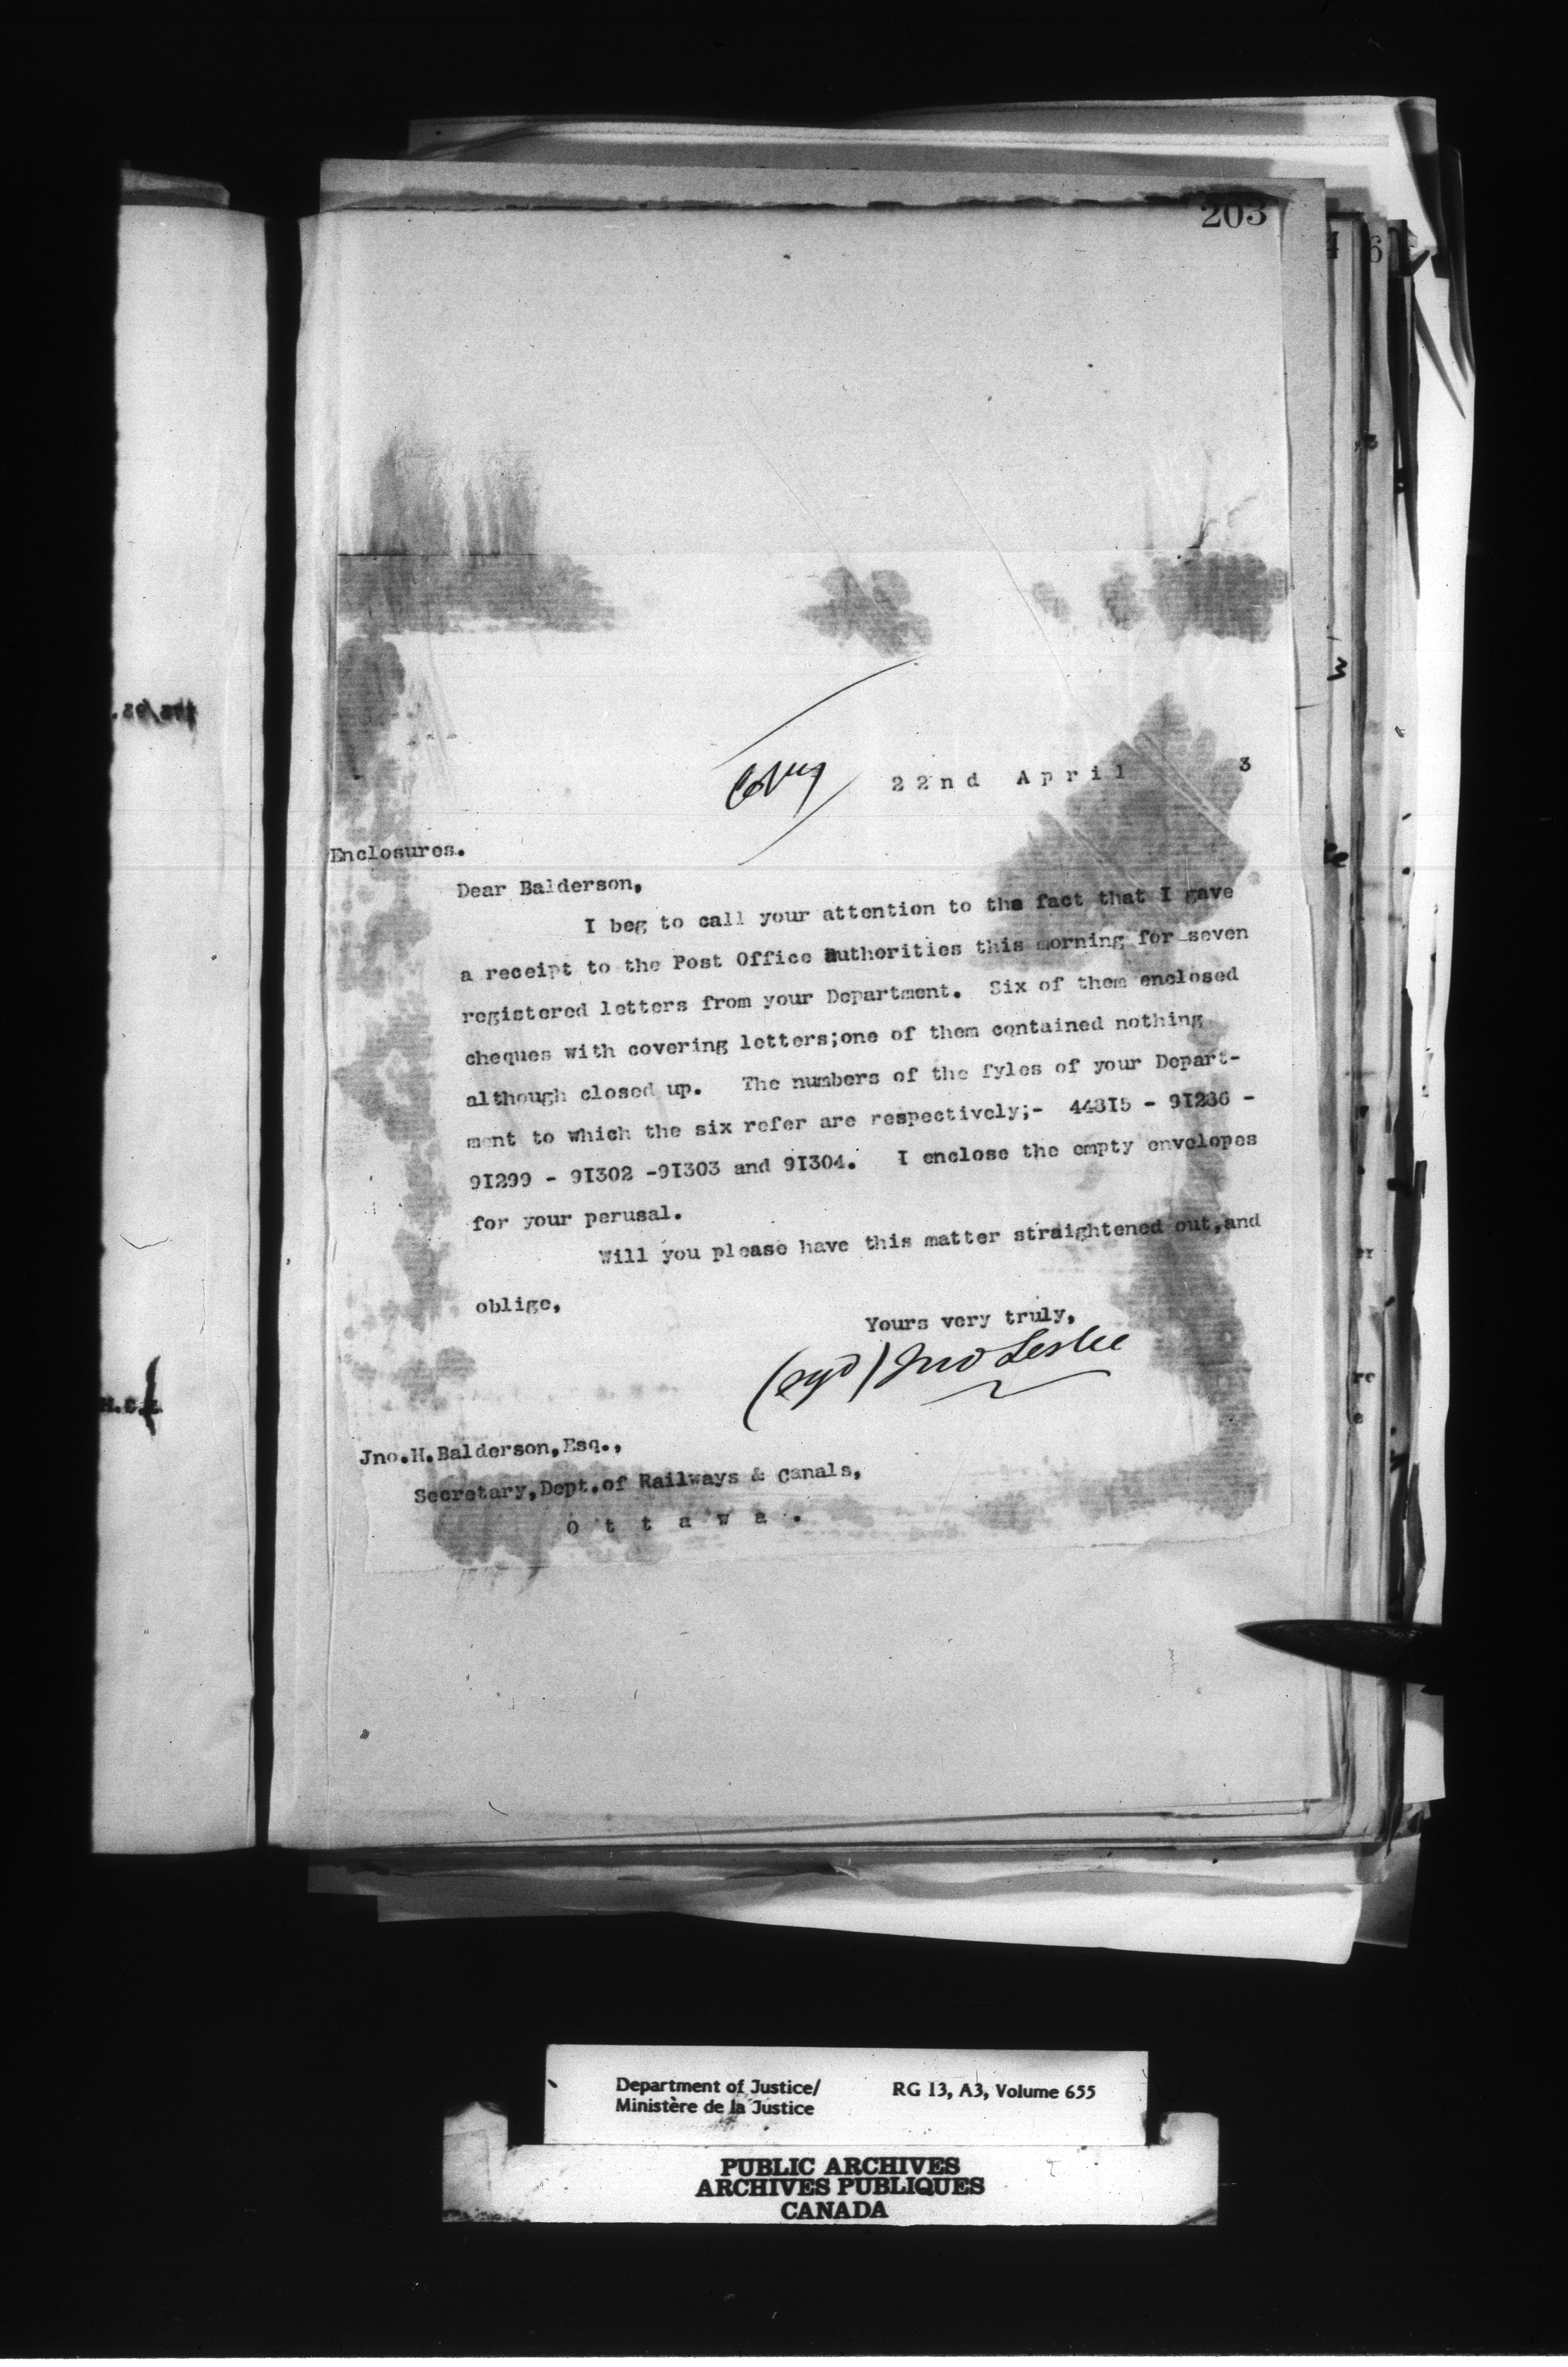 203
Copy
22nd April 3
Enclosures.
Dear Balderson,
I beg to call your attention to the fact that I gave
a receipt to the Post Office authorities this morning for seven
registered letters from your Department. Six of them enclosed
cheques with covering letters;one of them contained nothing
although closed up. The numbers of the fyles of your Depart-
ment to which the six refer are respectively;- 44815 - 91286 -
91299 - 91302 -91303 and 91304. I enclose the empty envelopes
for your perusal.
Will you please have this matter straightened out,and
oblige,
Yours very truly,
(sgd) Jno Leslie
Jno.H.Balderson,Esq.,
Secretary,Dept.of Railways & Canals,
Ottawa.
Department of Justice/ RG 13, A3, Volume 655
Ministère de la Justice
PUBLIC ARCHIVES
ARCHIVES PUBLIQUES
CANADA